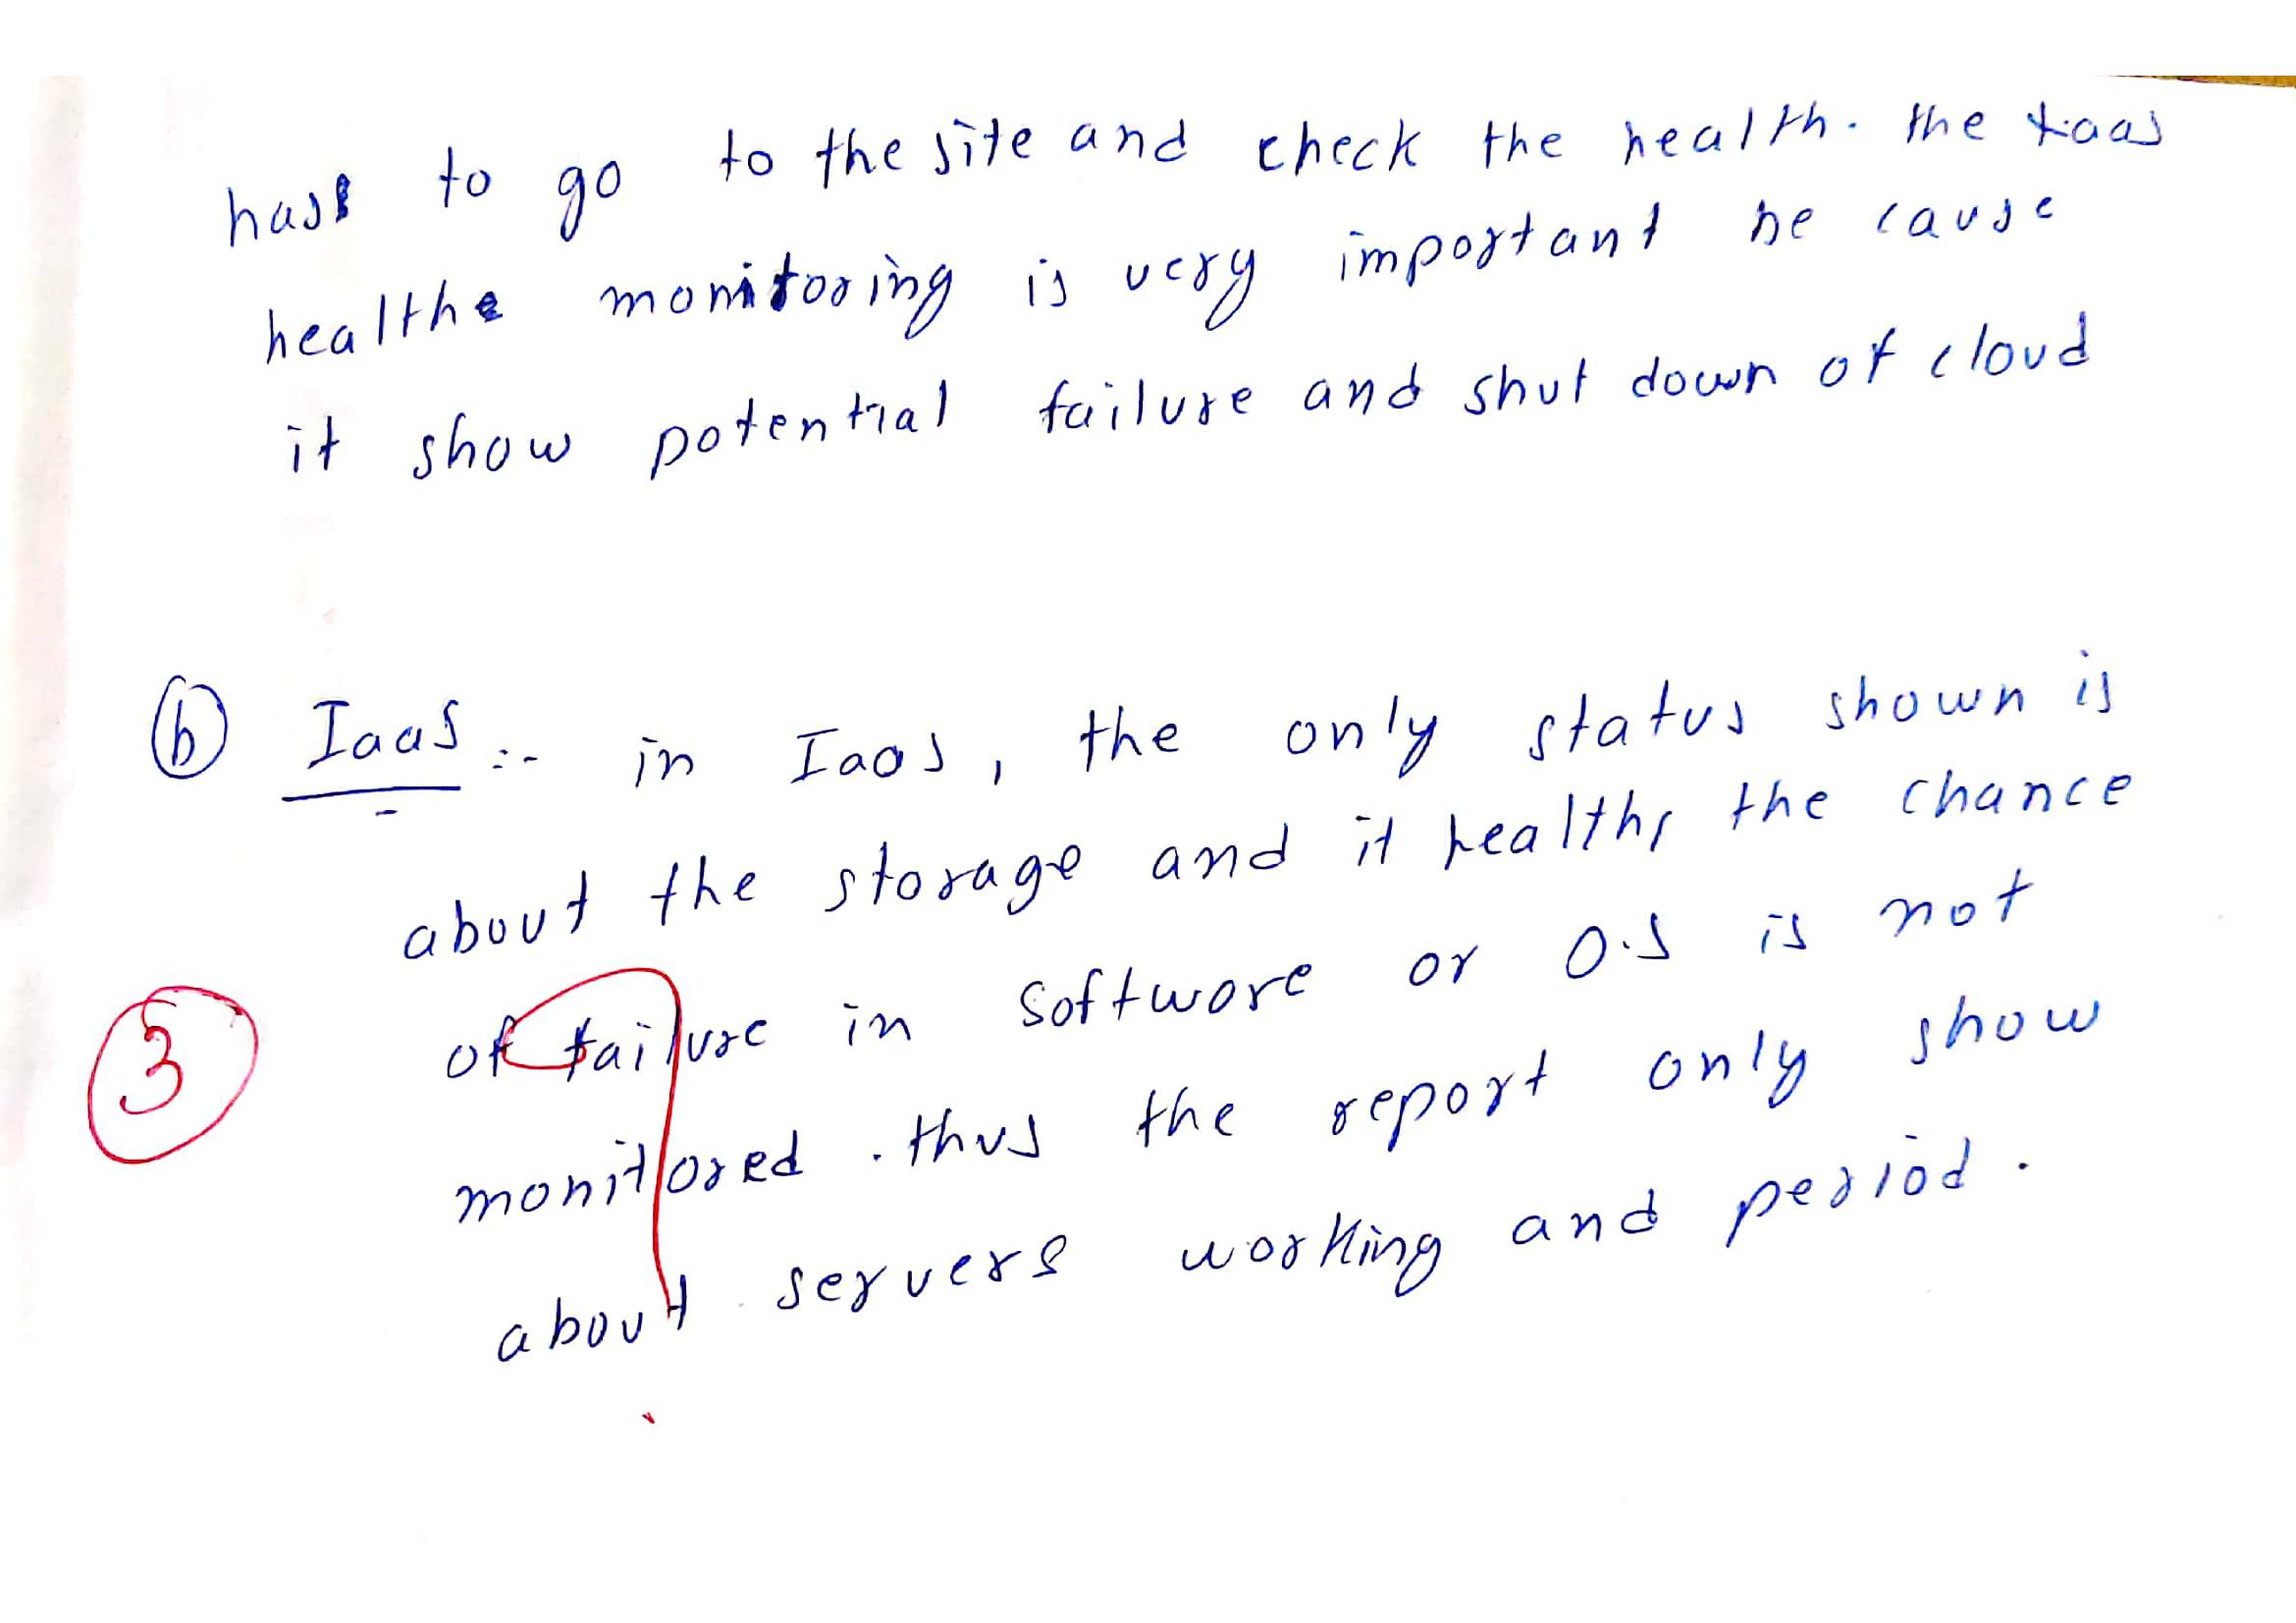 has to go to the site and check the health. the
health monitoring is very important be cause
it show potential failure and shut down of cloud
(b) IaaS :- in Iaas, the only status shown is
about the storage and it health, the chance
of failure in software or O.S is not
3
monitored . thus the report only show
about servers working and period .